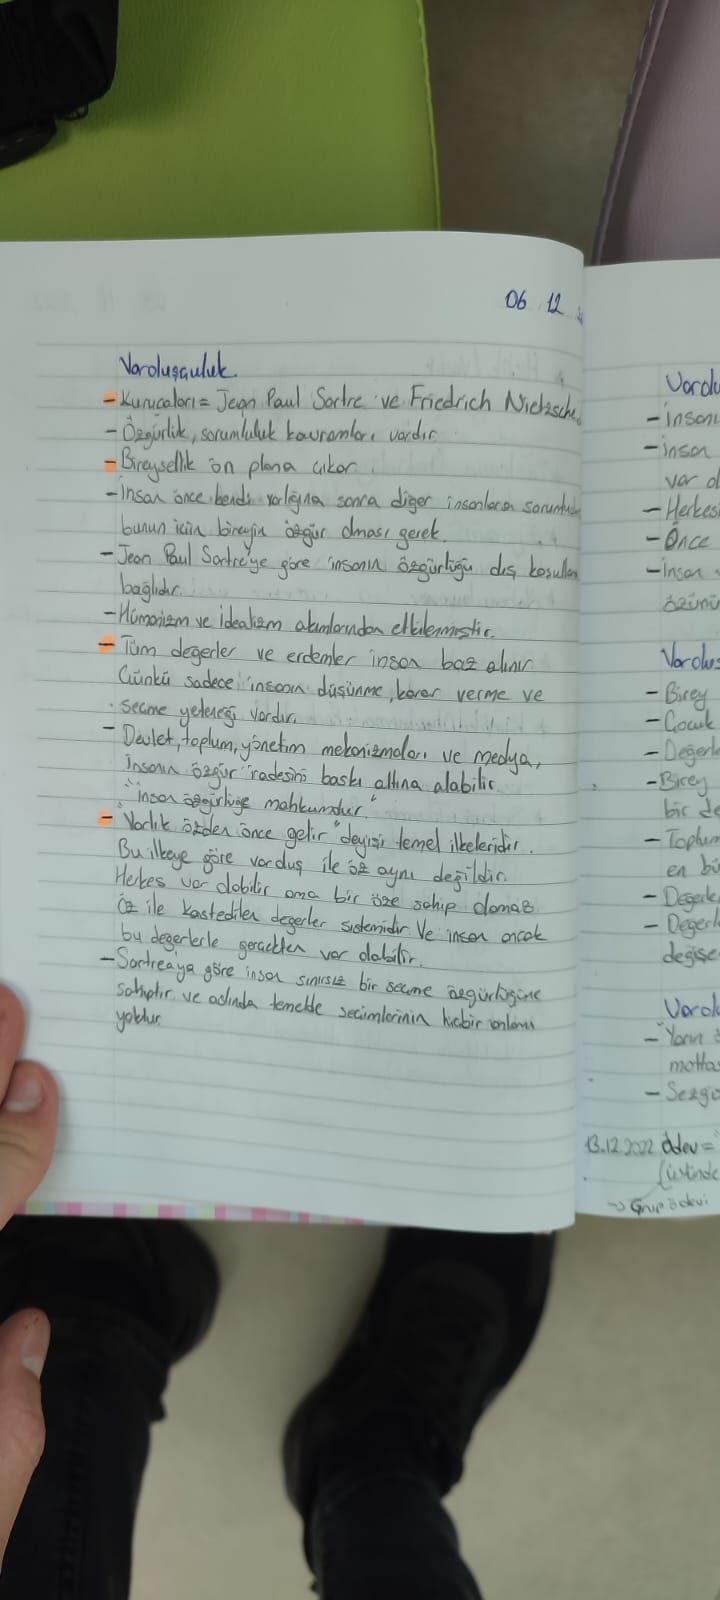 06 12
Varoluşçuluk
- Kurucaları = Jean Paul Sartre ve Friedrich Nietzsche
- Özgürlük, sorumluluk kavramları vardır
- Bireysellik ön plana çıkar
- İnsan önce kendi varlığına sonra diğer insanlara
bunun için bireyin özgür olması gerek.
- Jean Paul Sartre'ye göre insanın özgürlüğü dış koşullara
bağlıdır.
- Hümanizm ve idealizm akımlarından etkilenmiştir.
- Tüm değerler ve erdemler insan baz alınır
Çünkü sadece insanın düşünme, karar verme ve
seçme yeteneği vardır.
- Devlet, toplum, yönetim mekanizmaları ve medya,
İnsanın özgür iradesini baskı altına alabilir.
"İnsan özgürlüğe mahkumdur."
- "Varlık özden önce gelir" deyişi temel ilkeleridir.
Bu ilkeye göre varoluş ile öz aynı değildir.
Herkes var olabilir ama bir öze sahip olamaz
Öz ile kastedilen değerler sistemidir. Ve insan ancak
bu değerlerle gerçekten var olabilir.
- Sartrea'ya göre insan sınırsız bir seçme özgürlüğüne
sahiptir ve aslında temelde seçimlerinin hiçbir anlamı
yoktur.
Varolu
- İnsanı
- insan
var ol
- Herkesi
- Önce
- İnsan
özünü
Varolus
- Birey
- Çocuk
- Değerle
- Birey
bir de
- Toplum
en bü
- Değerle
- Değerl
değişe
Varolu
- "Yarın
mottas
- Sezgi
13.12.2022 ödev = "
(üstünde
-> Grup ödevi